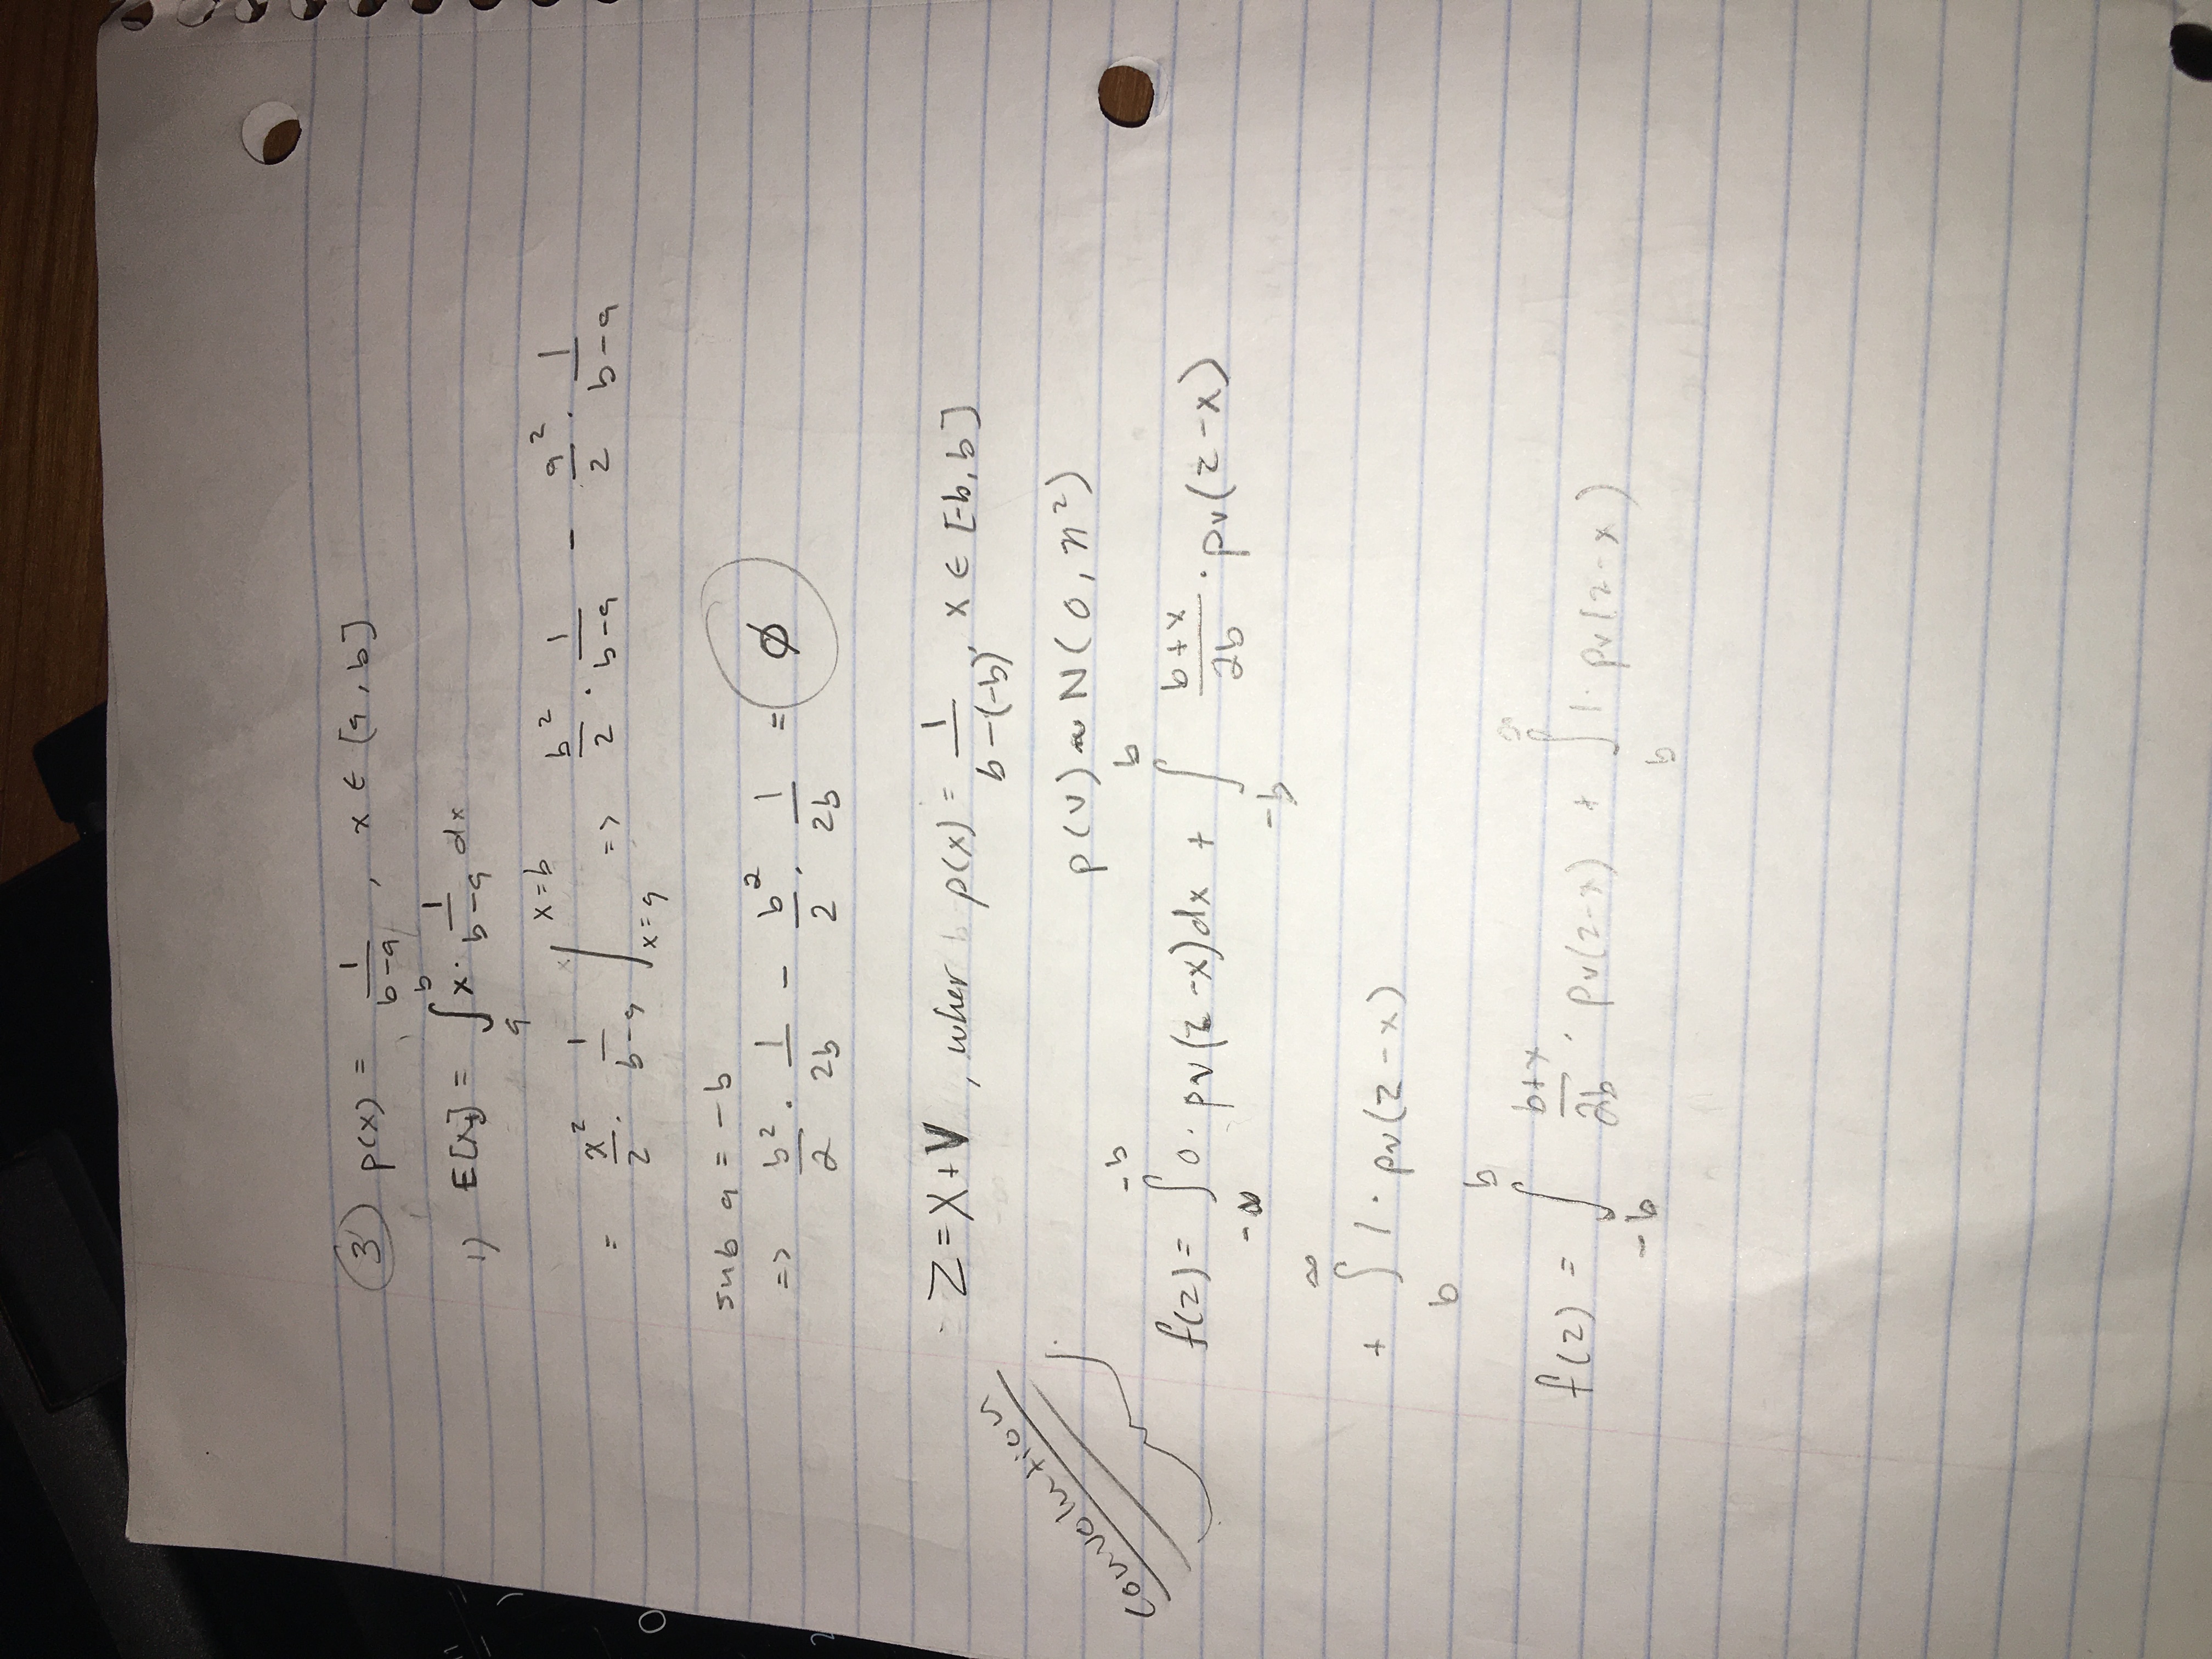 ③ p(x) = 1/(b-a) , x ∈ [a, b]
1) E[x] = ∫_a^b x · 1/(b-a) dx
= x²/2 · 1/(b-a) |_{x=a}^{x=b} => b²/2 · 1/(b-a) - a²/2 · 1/(b-a)
sub a = -b
=> b²/2 · 1/2b - b²/2 · 1/2b = ∅
Z = X + V , wher p(x) = 1/(b-(-b)), x ∈ [-b, b]
convolution
p(v) ~ N(0, n²)
f(z) = ∫_{-∞}^{-b} 0 · pv(z-x)dx + ∫_{-b}^{b} (b+x)/2b · pv(z-x)
+ ∫_b^∞ 1 · pv(z-x)
f(z) = ∫_{-b}^{b} (b+x)/2b · pv(z-x) + ∫_b^∞ 1 · pv(z-x)